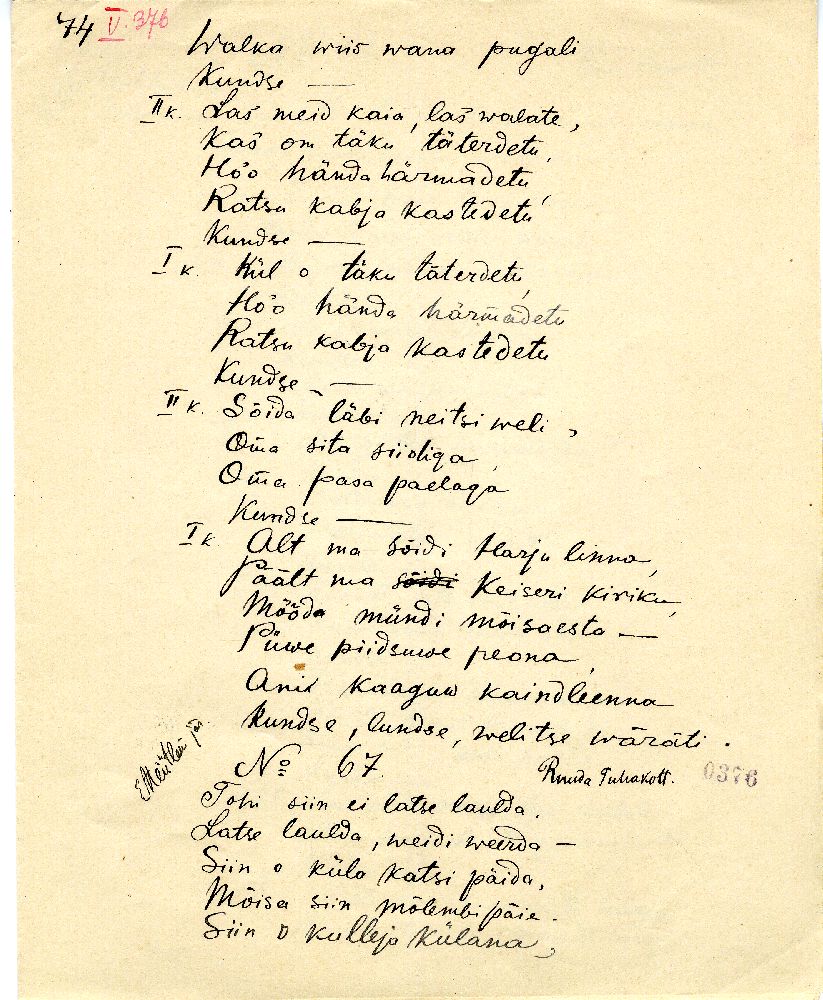 74 V. 376
Walka wiis wana pugali
Kundse —
II k. Las meid kaia, las walate,
Kas om täku täterdetu,
Ho'o hända härmadetu,
Ratsu kabja kastedetu
Kundse —
I k. Kül o täku täterdetu,
Ho'o hända härmädetu
Ratsu kabja kastedetu
Kundse —
II k. Sõida läbi neitsi weli,
Oma sita siidiga,
Oma pasa paelaga
Kundse —
I k. Alt ma sõidi Harju linna,
Päält ma sõidi Keiseri kiriku,
Mööda mündi mõisaesta —
Püwe piidsuwe peona,
Anid kaaguw kaindleenna
Kundse, lundse, welitse wäräti.
No 67. Ruuda Tuhakott. 0376
Tohi siin ei latse laulda,
Latse laulda, weidi weerda —
Siin o külo katsi päida,
Mõisa siin mõlembi päie.
Siin o kulleja külana,